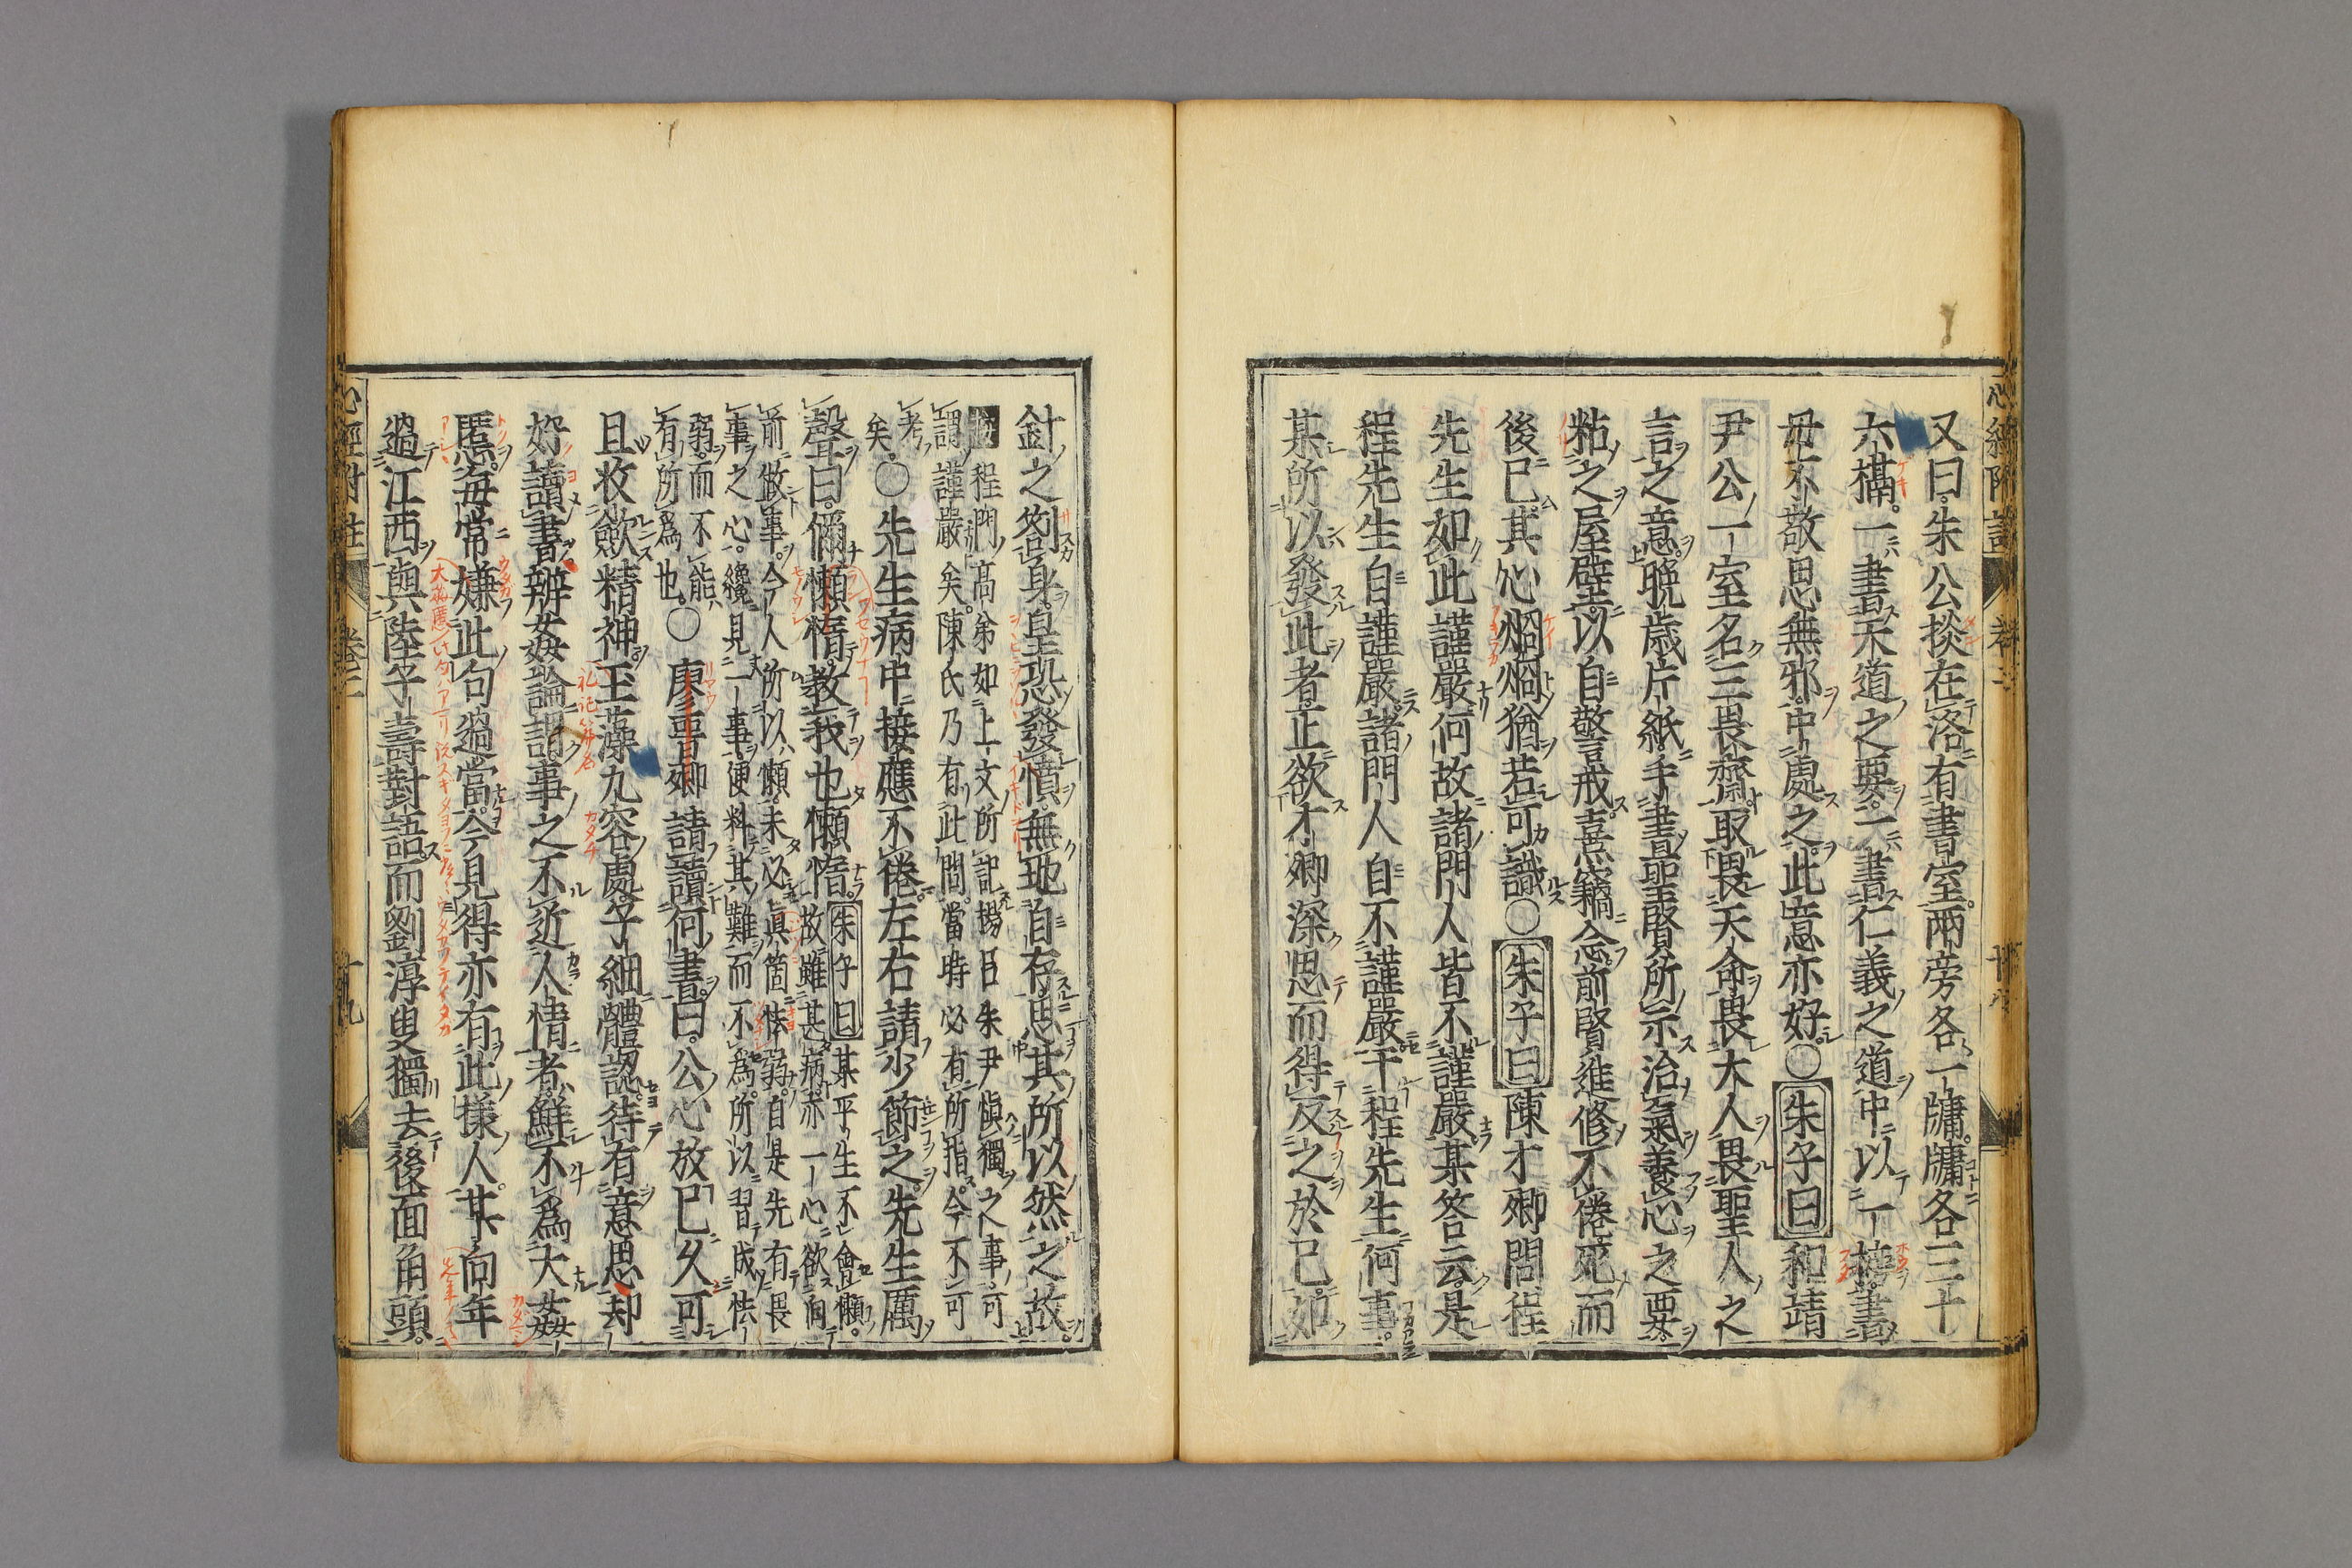 又曰朱公掞在洛有書室兩旁各一牖牖各三十
六槅一書天道之要一書仁義之道中以一榜書
毋不敬思無邪中處之此意亦好〇朱子曰和靖
尹公一室名三畏齋取畏天命畏大人畏聖人之
言之意晚歲片紙手書聖賢所示治氣養心之要
粘之屋壁以自警戒熹竊念前賢進修不倦死而
後已其心烱烱猶若可識〇朱子曰陳才卿問程
先生如此謹嚴何故諸門人皆不謹嚴某答云是
程先生自謹嚴諸門人自不謹嚴干程先生何事
某所以發此者正欲才卿深思而得反之於己如
針之劄身皇恐發憤無地自存思其所以然之故
程門高弟如上文所記楊呂朱尹愼獨之事可
謂謹嚴矣陳氏乃有此問當時必有所指今不可
考
矣〇先生病中接應不倦左右請少節之先生厲
聲曰儞懶惰教我也懶惰朱子曰某平生不會懶
故雖甚病亦一心欲向
前做事今人所以懶未必眞箇怯弱自是先有畏
事之心纔見一事便料其難而不爲所以習成怯
弱而不能
有所爲也〇廖晉卿請讀何書曰公心放已久可
且收斂精神玉藻九容處子細體認待有意思却
好讀書辨姦論謂事之不近人情者鮮不爲大姦
慝每常嫌此句過當今見得亦有此樣人某向年
過江西與陸子壽對語而劉淳叟獨去後面角頭
心經附註 卷二
心經附註 卷二 十九